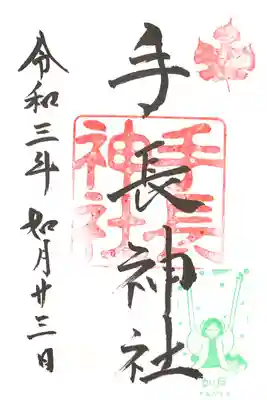 手長神社
手長
神社
令和三年 如月廿三日